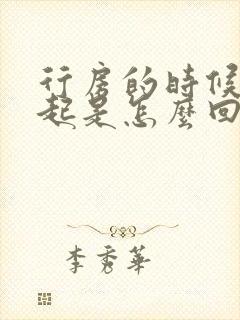 行房的時候
起是怎麼回
李秀華